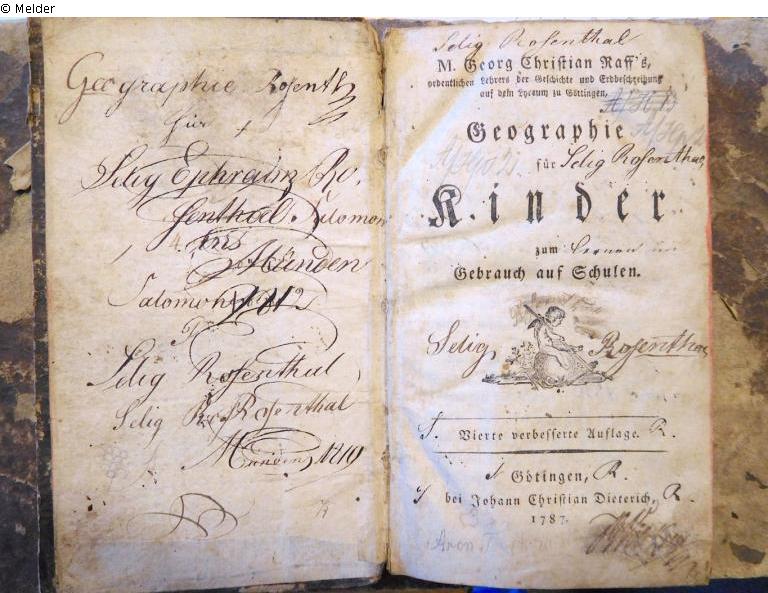 © Melder
Geographie Rosenth
für
Selig Ephraim Ro-
senthal Salomon
ins
Münden
Salomon 1812
Selig Rosenthal
Selig Ro Rosenthal
Münden 1810
Selig Rosenthal
M. Georg Christian Raff's,
ordentlichen Lehrers der Geschichte und Erdbeschreibung
auf dem Lyceum zu Göttingen,
Geographie
für Selig Rosenthal
Kinder
zum Lernen
Gebrauch auf Schulen.
Selig Rosenthal
S. Vierte verbesserte Auflage. R.
Götingen, R.
bei Johann Christian Dieterich, R.
1787.
Aron